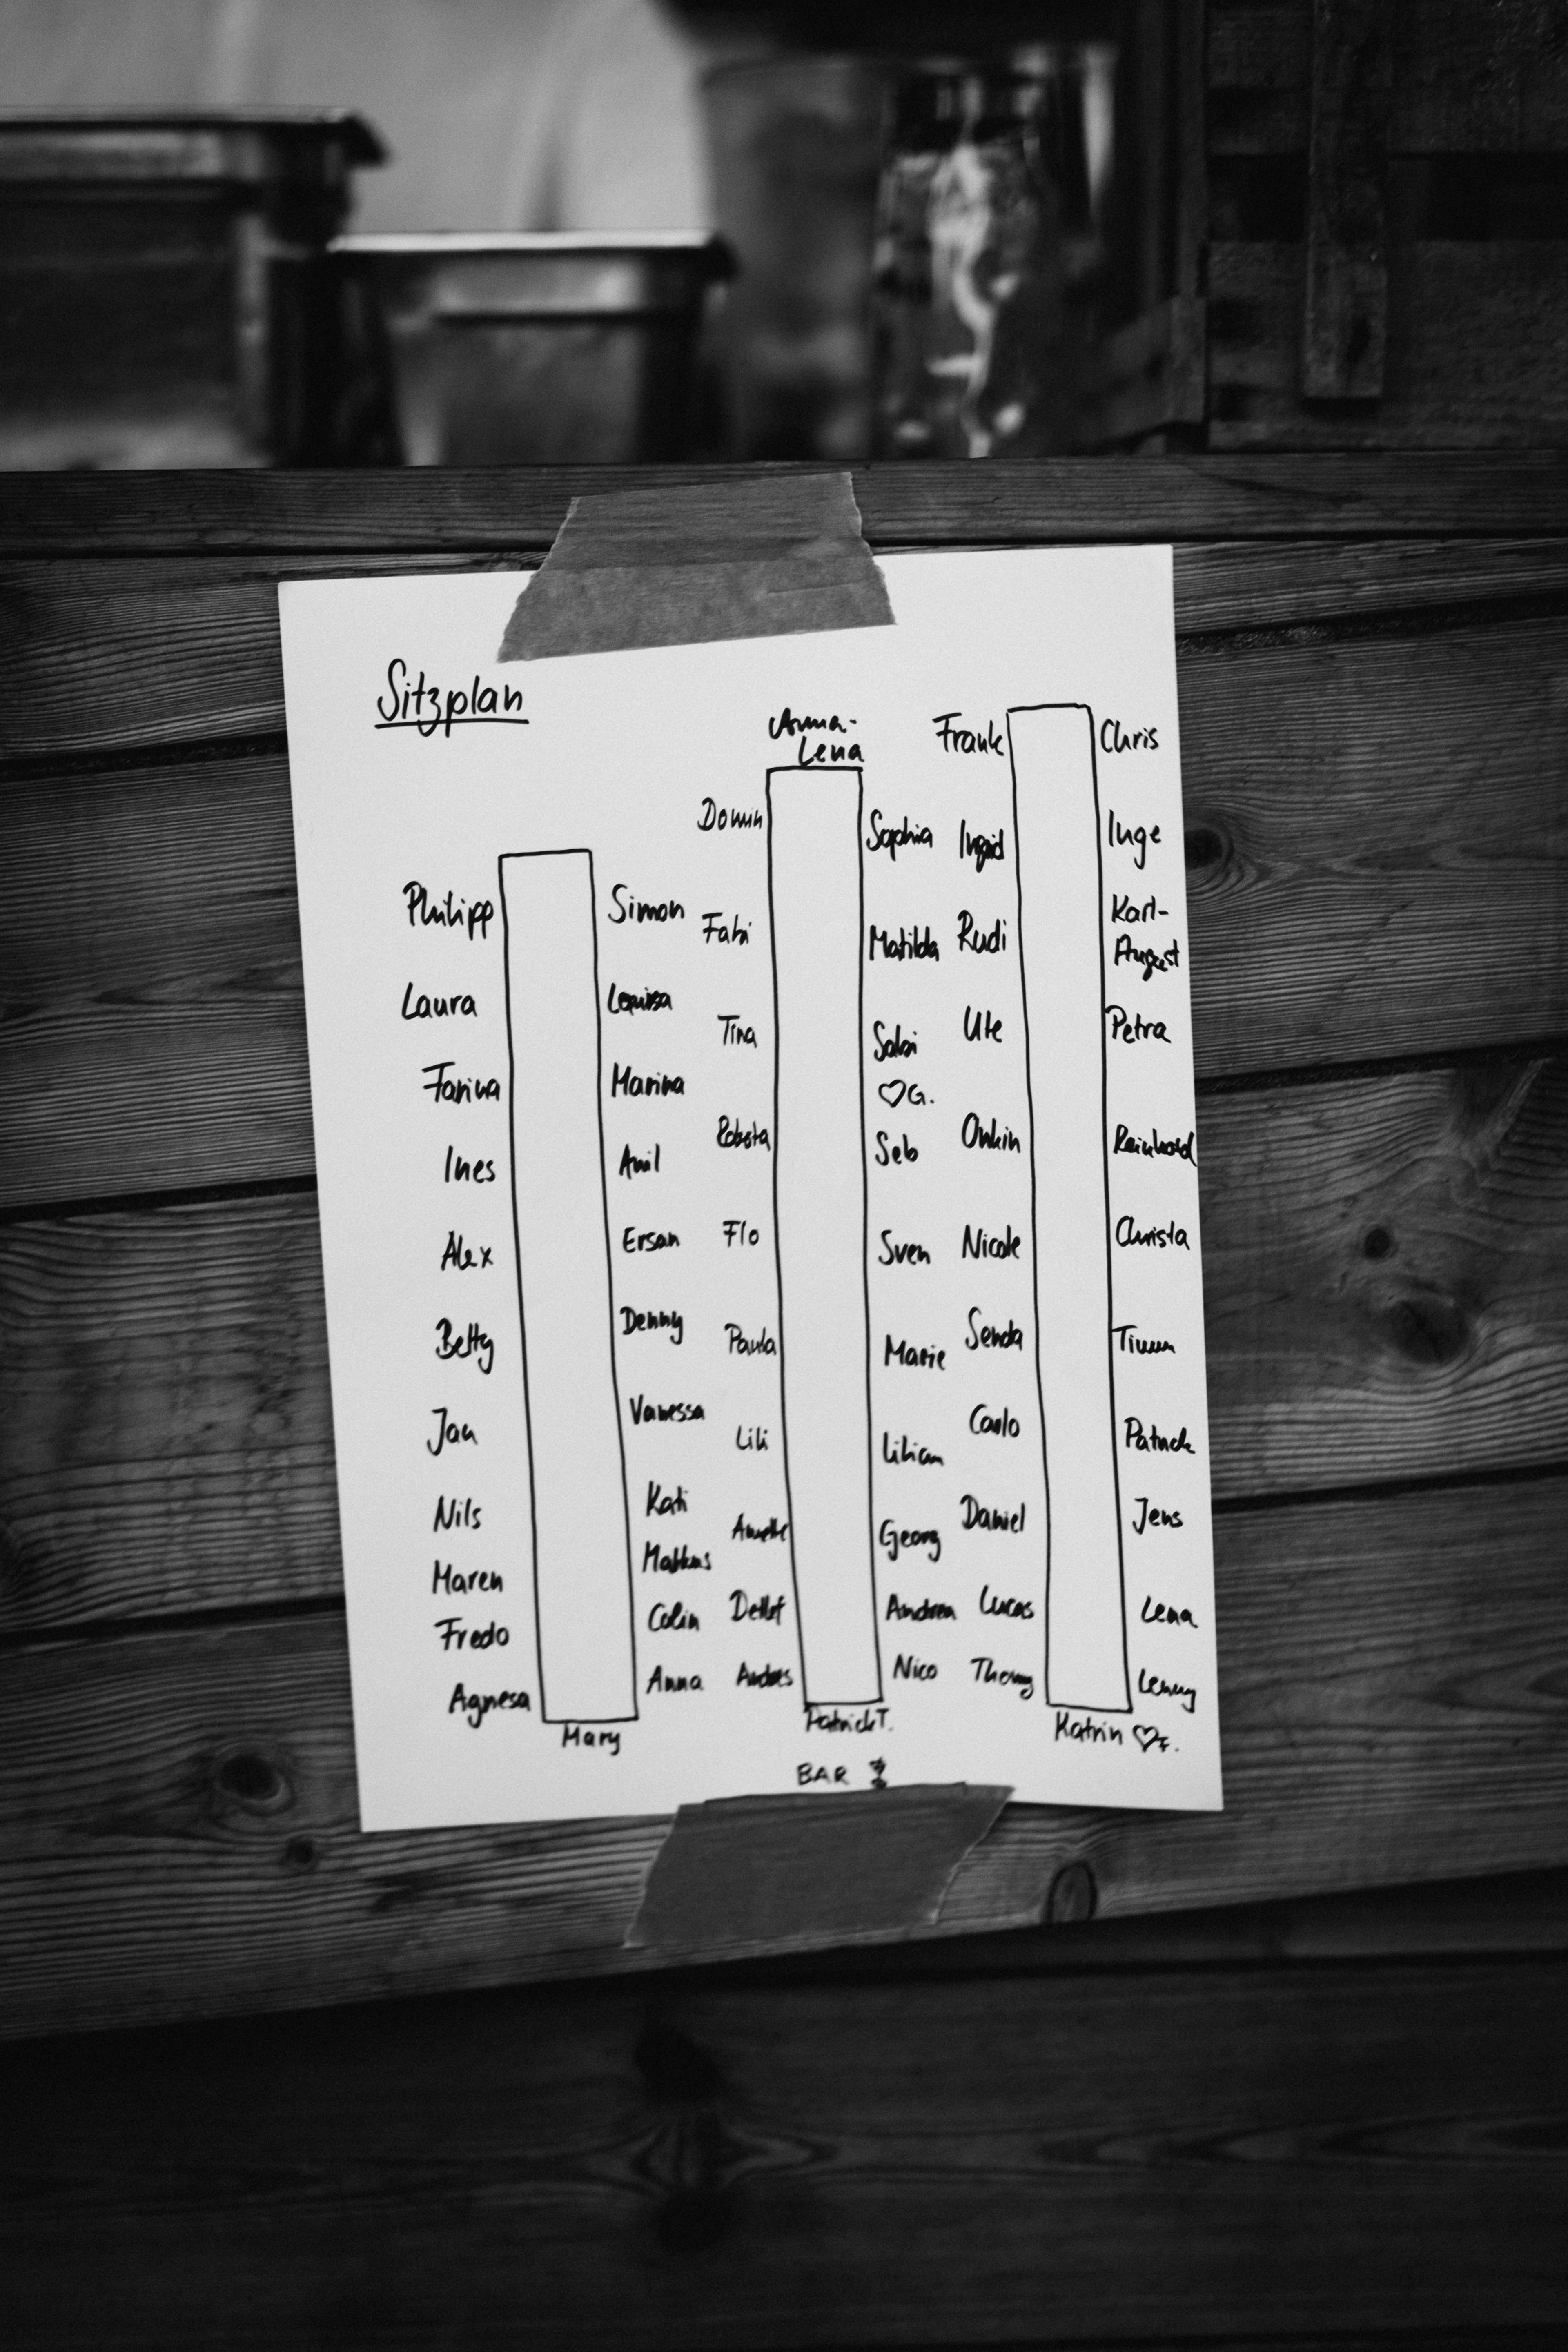 Sitzplan
Philipp
Laura
Farina
Ines
Alex
Betty
Jan
Nils
Maren
Fredo
Agnesa
Simon
Marina
Anil
Ersan
Denny
Vanessa
Kati
Colin
Anna
Mary
Anna-
Lena
Domin
Fabi
Tina
Flo
Paula
Lili
Annette
Detlef
Andreas
Sophia
Matilda
Sabi
♡G.
Seb
Sven
Marie
Lilian
Georg
Andrea
Nico
Patrick T.
BAR
Frank
Ingrid
Rudi
Ute
Nicole
Senda
Carlo
Daniel
Lucas
Chris
Inge
Karl-
August
Petra
Reinhard
Christa
Timm
Patrick
Jens
Lena
Lenny
Katrin ♡F.